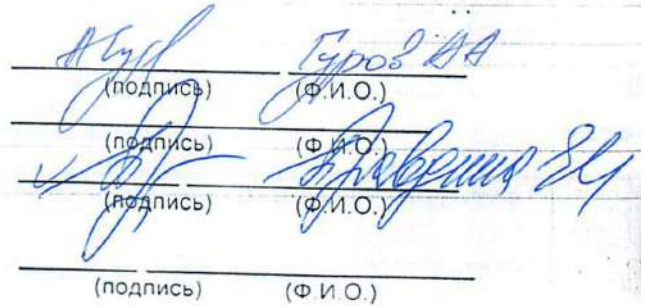 Гуров АА
(подпись) (Ф.И.О.)
(подпись) (Ф.И.О.)
(подпись) (Ф.И.О.)
(подпись) (Ф.И.О.)